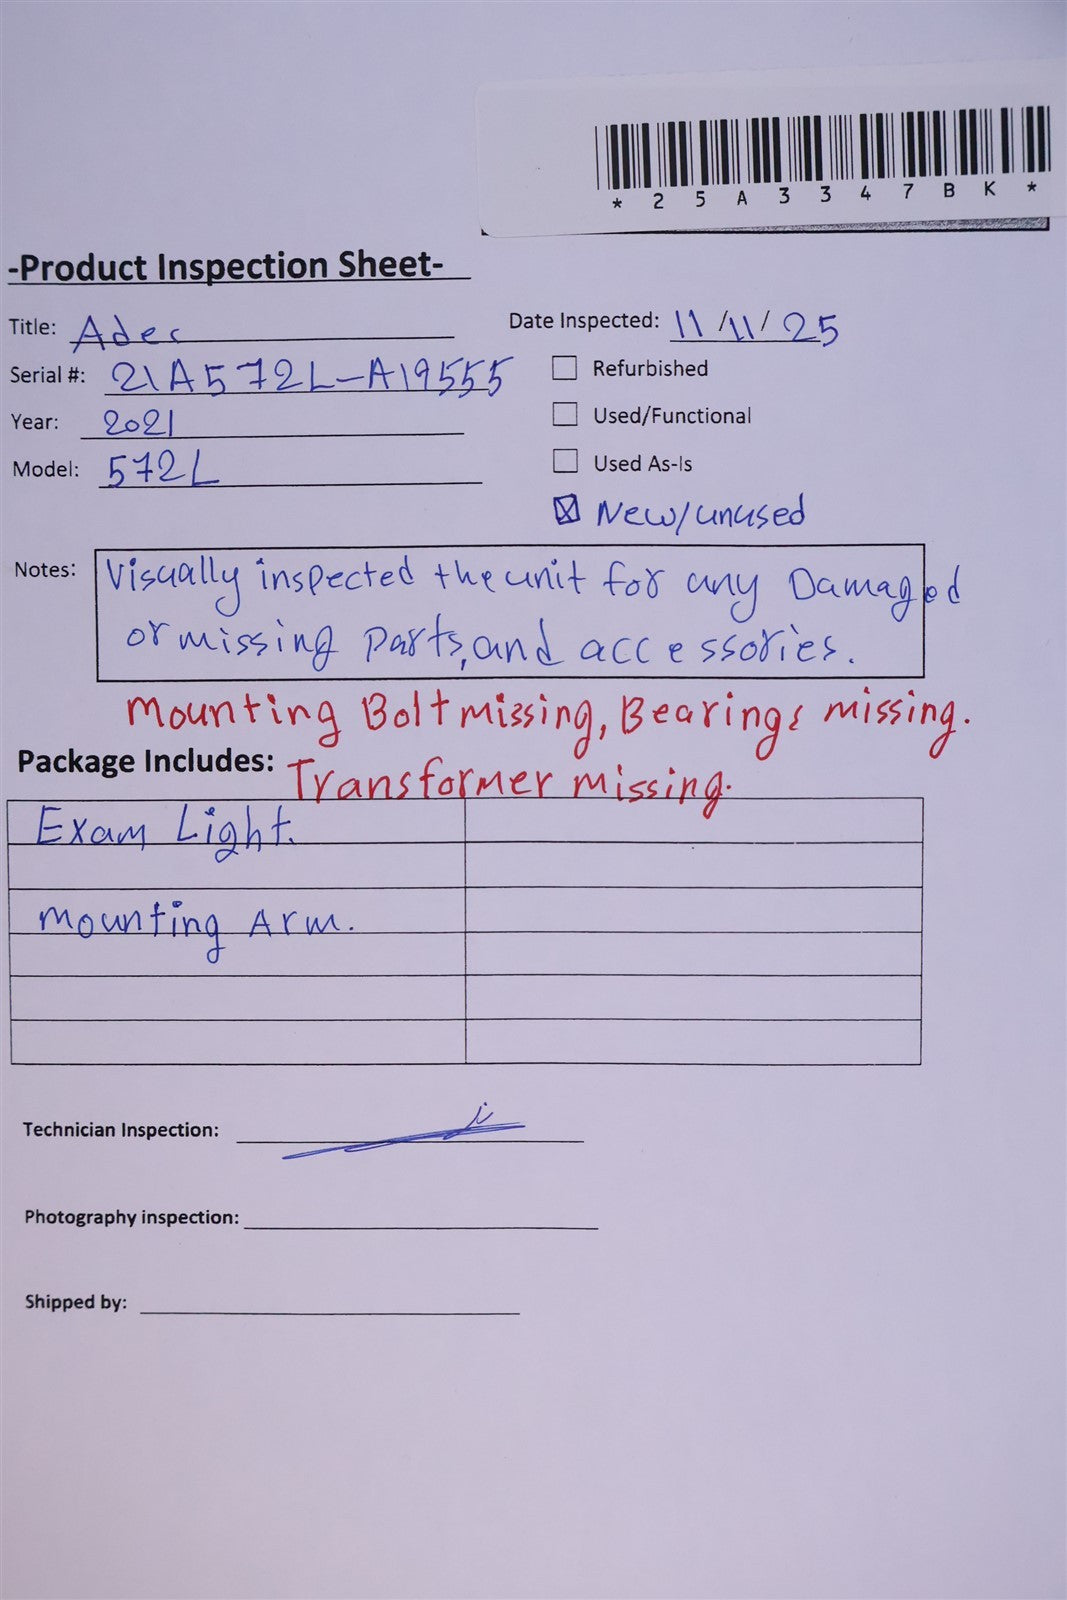 * 2 5 A 3 3 4 7 B K *
-Product Inspection Sheet-
Title: Adec
Date Inspected: 11/11/25
Serial #: 21A572L-A19555
Refurbished
Year: 2021
Used/Functional
Model: 572L
Used As-Is
New/unused
Notes: Visually inspected the unit for any Damaged
or missing parts, and accessories.
Mounting Bolt missing, Bearings missing.
Package Includes: Transformer missing.
Exam Light.
Mounting Arm.
Technician Inspection:
Photography inspection:
Shipped by: